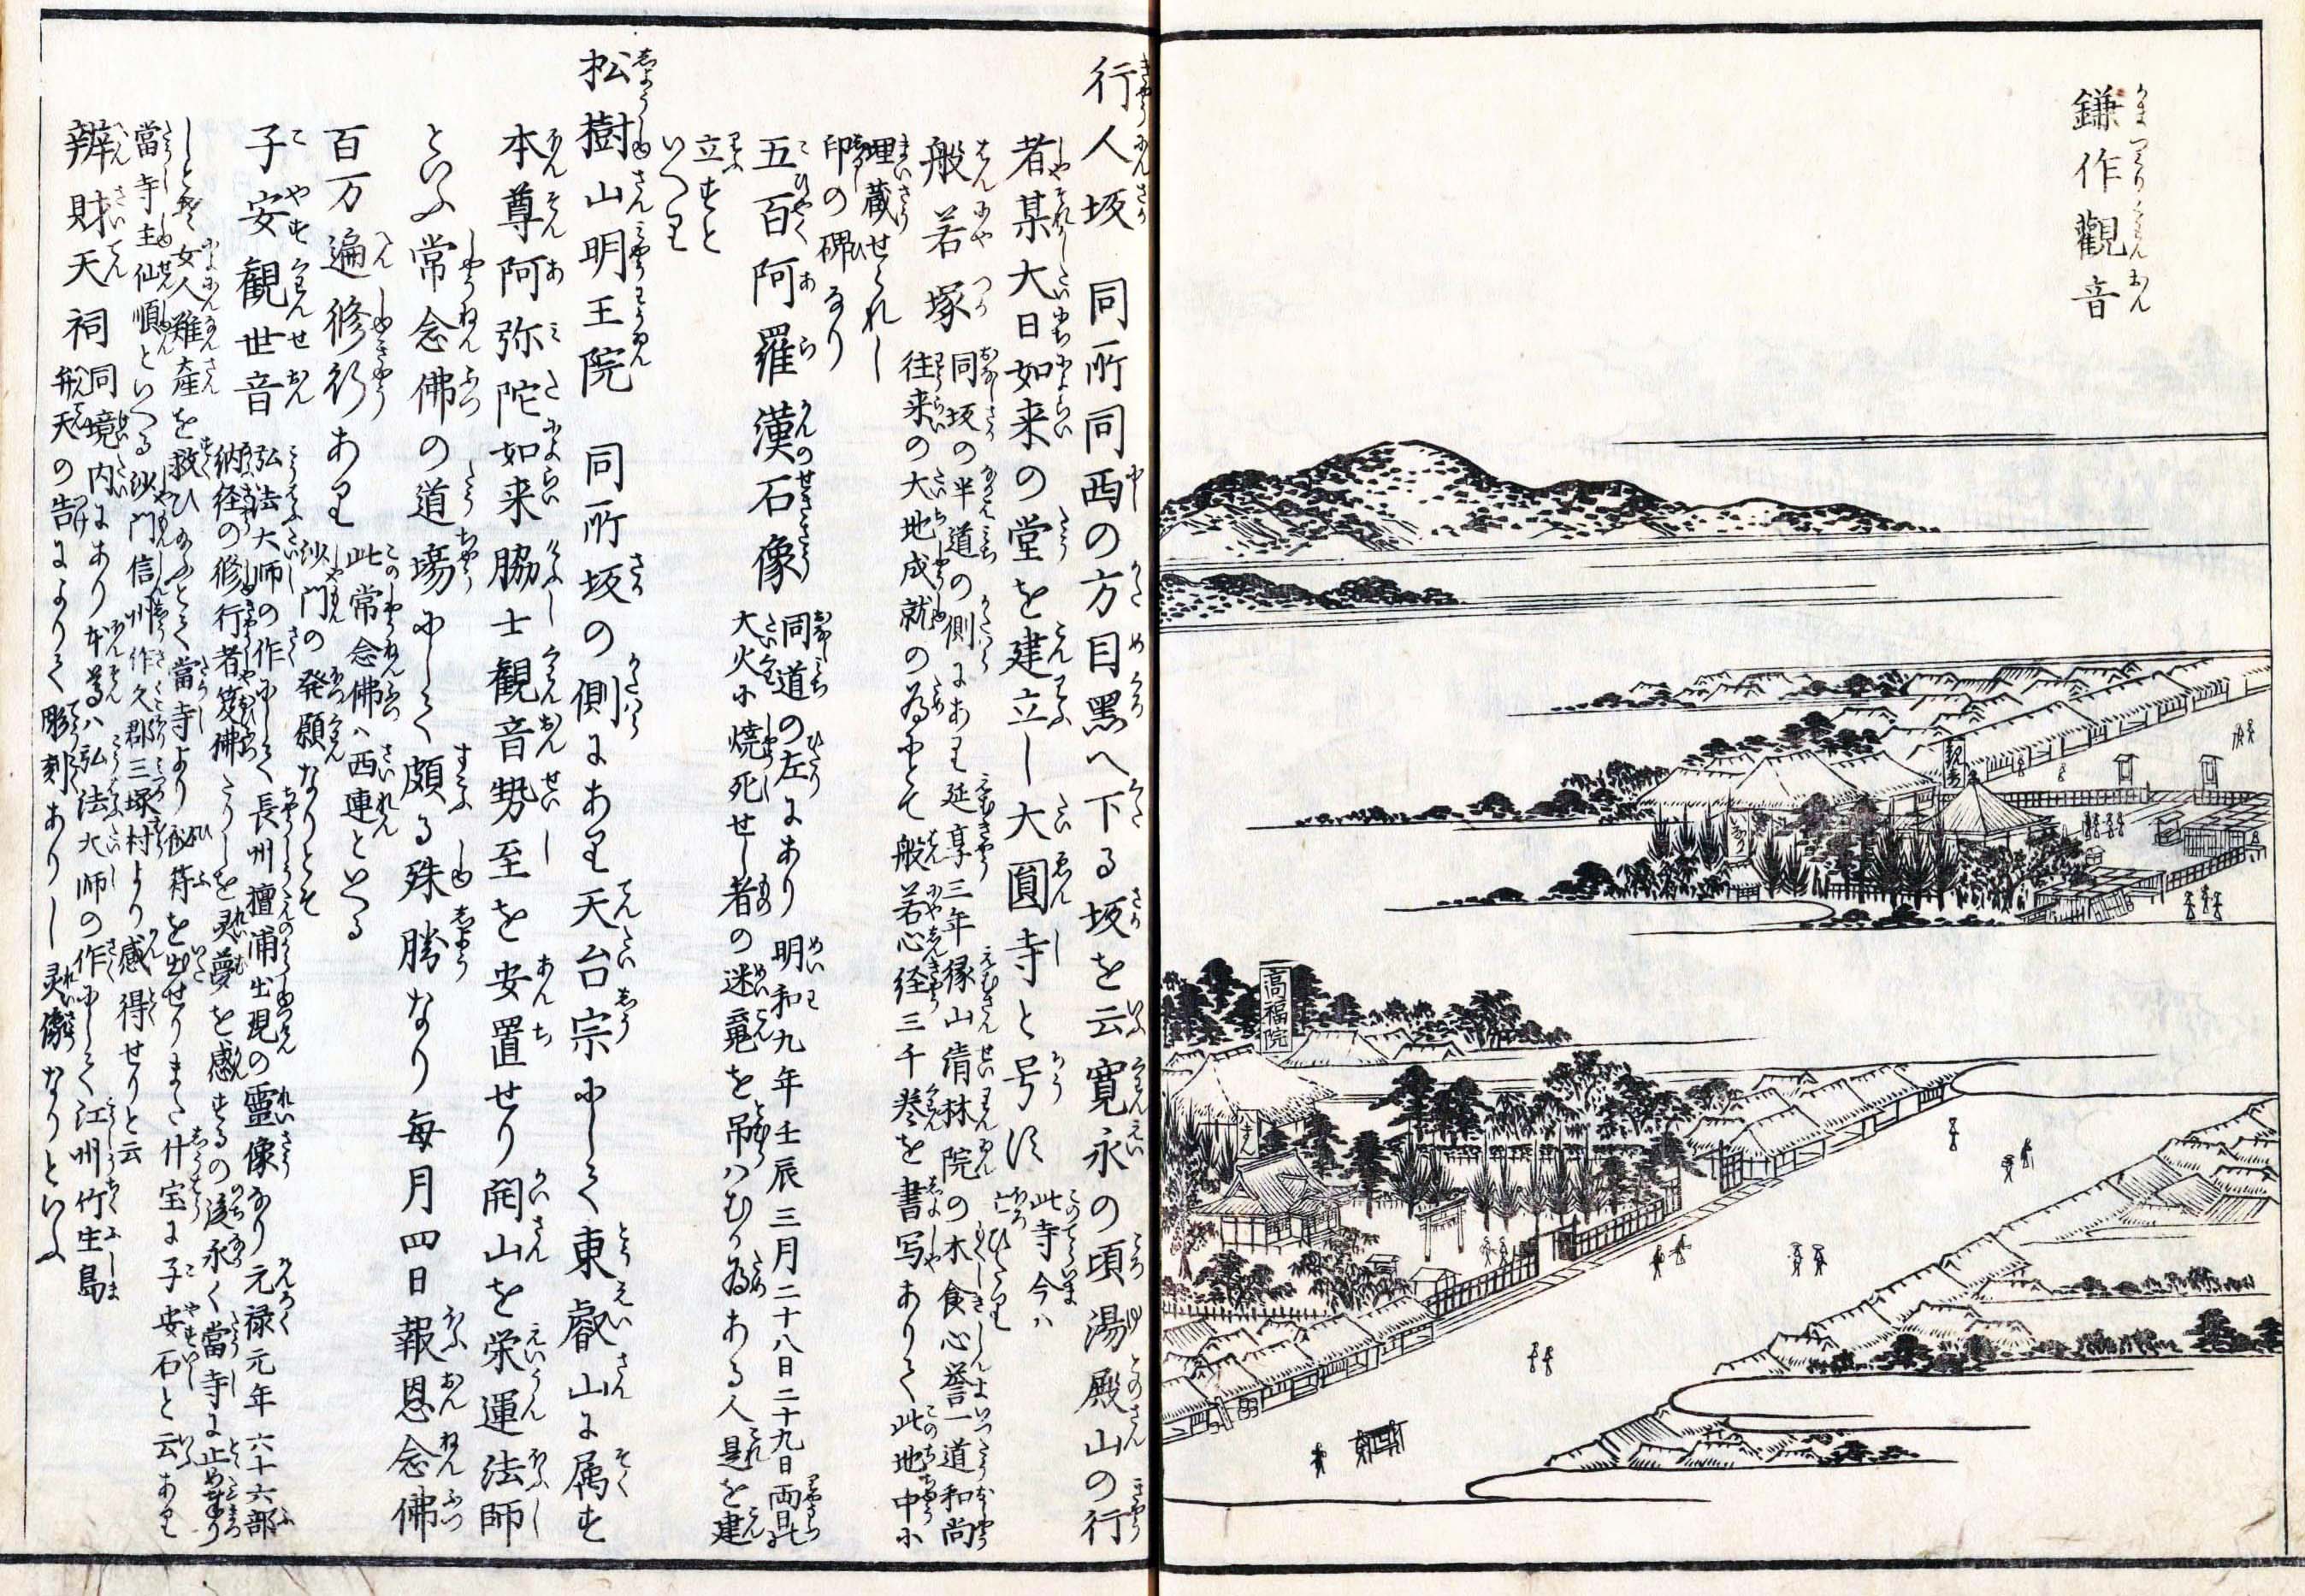 鎌作觀音
観音
いなり
高福院
本そん
行人坂 同所同西の方目黒へ下る坂を云寛永の頃湯殿山の行
者某大日如来の堂を建立し大圓寺と号す 此寺今ハ
亡ひたり
般若塚 同坂の半道の側にあり延享三年縁山清林院の木食心誉一道和尚
往来の大地成就の為にとて般若心経三千巻を書写ありて此地中に
埋蔵せられし
印の碑なり
五百阿羅漢石像 同道の左にあり明和九年壬辰三月二十八日二十九日両日の
大火に焼死せし者の迷魂を吊ハむか為ある人是を建
立すと
いへり
松樹山明王院 同所坂の側にあり天台宗にして東叡山に属す
本尊阿弥陀如来脇士観音勢至を安置せり開山を栄運法師
といふ常念佛の道場にして頗る殊勝なり毎月四日報恩念佛
百万遍修行あり 此常念佛ハ西運といへる
沙門の発願なりとそ
子安観世音 弘法大師の作にして長州壇浦出現の靈像なり元禄元年六十六部
納経の修行者笈佛たりしを灵夢を感するの後永く當寺に止め奉り
しとそ女人難産を救ひ給ふとて當寺より秘符を出せりまた什宝に子安石と云あり
當寺主仙順といへる沙門信州作久郡三塚村より感得せりと云
辨財天祠 同境内にあり本尊ハ弘法大師の作にして江州竹生島
弁天の告によりて彫刻ありし灵像なりといふ